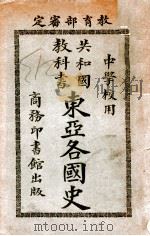 教育部審定
中學校用
共和國教科書
東亞各國史
商務印書館出版